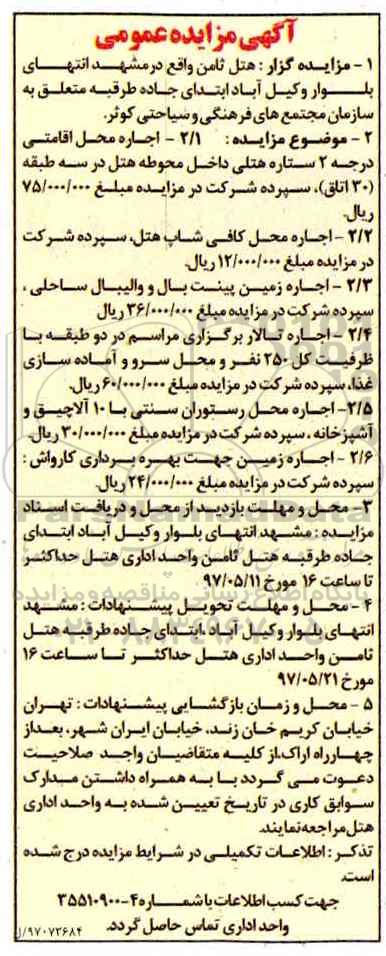 آگهی مزایده عمومی
۱ - مزایده گزار : هتل ثامن واقع در مشهد انتهای
بلوار وکیل آباد ابتدای جاده طرقبه متعلق به
سازمان مجتمع های فرهنگی و سیاحتی کوثر.
۲ - موضوع مزایده : ۲/۱ - اجاره محل اقامتی
درجه ۲ ستاره هتلی داخل محوطه هتل در سه طبقه
(۳۰ اتاق)، سپرده شرکت در مزایده مبلغ ۷۵/۰۰۰/۰۰۰
ریال.
۲/۲ - اجاره محل کافی شاپ هتل، سپرده شرکت
در مزایده مبلغ ۱۲/۰۰۰/۰۰۰ ریال.
۲/۳ - اجاره زمین پینت بال و والیبال ساحلی ،
سپرده شرکت در مزایده مبلغ ۳۶/۰۰۰/۰۰۰ ریال
۲/۴ - اجاره تالار برگزاری مراسم در دو طبقه با
ظرفیت کل ۲۵۰ نفر و محل سرو و آماده سازی
غذا، سپرده شرکت در مزایده مبلغ ۶۰/۰۰۰/۰۰۰ ریال.
۲/۵- اجاره محل رستوران سنتی با ۱۰ آلاچیق و
آشپزخانه ، سپرده شرکت در مزایده مبلغ ۳۰/۰۰۰/۰۰۰ ریال.
۲/۶ - اجاره زمین جهت بهره برداری کارواش :
سپرده شرکت در مزایده مبلغ ۲۴/۰۰۰/۰۰۰ ریال.
۳- محل و مهلت بازدید از محل و دریافت اسناد
مزایده : مشهد انتهای بلوار وکیل آباد ابتدای
جاده طرقبه هتل ثامن واحد اداری هتل حداکثر
تا ساعت ۱۶ مورخ ۹۷/۰۵/۱۱
۴ - محل و مهلت تحویل پیشنهادات : مشهد
انتهای بلوار وکیل آباد ،ابتدای جاده طرقبه هتل
ثامن واحد اداری هتل حداکثر تا ساعت ۱۶
مورخ ۹۷/۰۵/۲۱
۵ - محل و زمان بازگشایی پیشنهادات : تهران
خیابان کریم خان زند، خیابان ایران شهر، بعداز
چهارراه اراک،از کلیه متقاضیان واجد صلاحیت
دعوت می گردد با به همراه داشتن مدارک
سوابق کاری در تاریخ تعیین شده به واحد اداری
هتل مراجعه نمایند.
تذکر : اطلاعات تکمیلی در شرایط مزایده درج شده
است.
جهت کسب اطلاعات با شماره ۴-۳۵۵۱۰۹۰۰
واحد اداری تماس حاصل گردد.
۹۷۰۷۳۶۸۴/ل